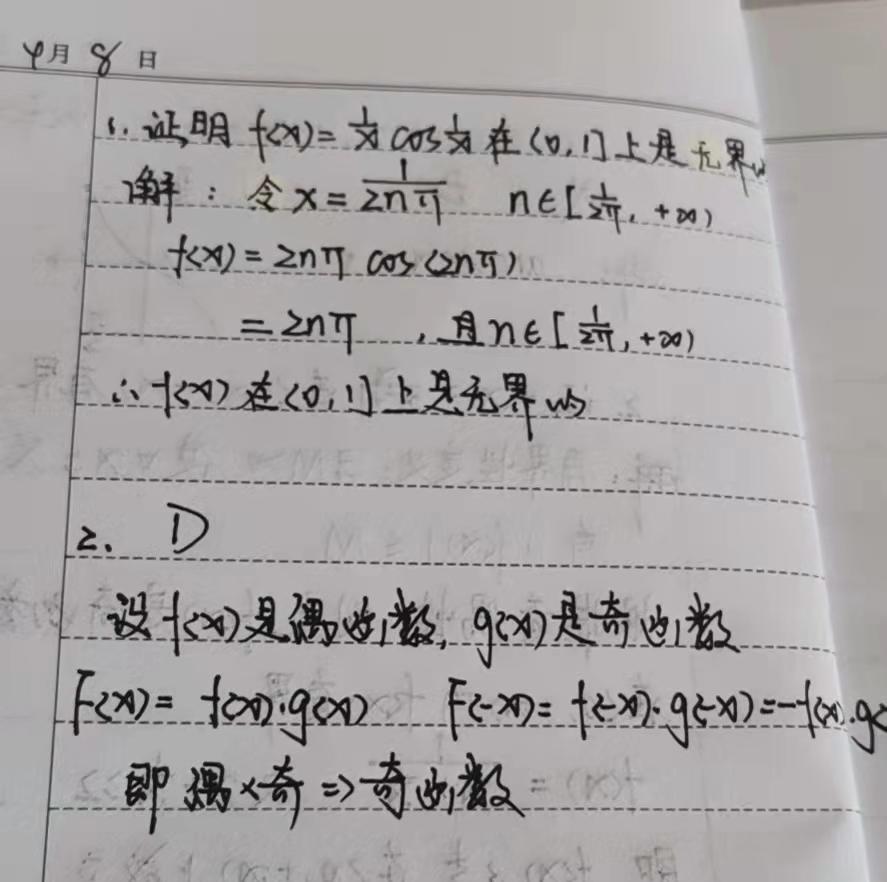 4月8日
1. 证明 f(x)=1/x cos1/x 在(0,1]上是无界的
解：令 x=1/2nπ n∈[1/2π,+∞)
f(x)=2nπ cos(2nπ)
=2nπ ,且n∈[1/2π,+∞)
∴f(x)在(0,1]上是无界的
2. D
设f(x)是偶函数,g(x)是奇函数
F(x)=f(x)·g(x) F(-x)=f(-x)·g(-x)=-f(x)·g(
即偶×奇=>奇函数